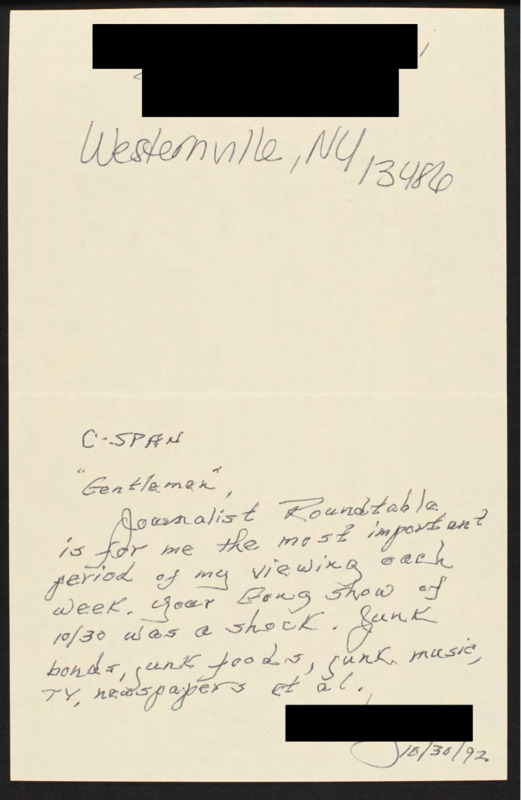 Westernville, NY
13486
C-SPAN
"Gentlemen",
Journalist Roundtable
is for me the most important
period of my viewing each
week. Your Gong show of
10/30 was a shock. Junk
bonds, junk foods, junk music,
TV, newspapers et al.
10/30/92